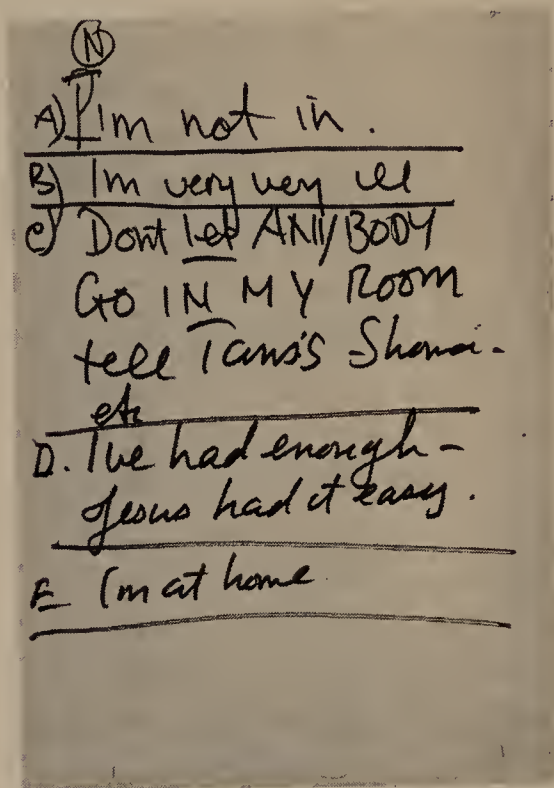 N
A) I'm not in.
B) Im very very ill
C) Dont let ANYBODY
GO IN MY ROOM
tell
etc
D. I've had enough -
Jesus had it easy.
E I'm at home